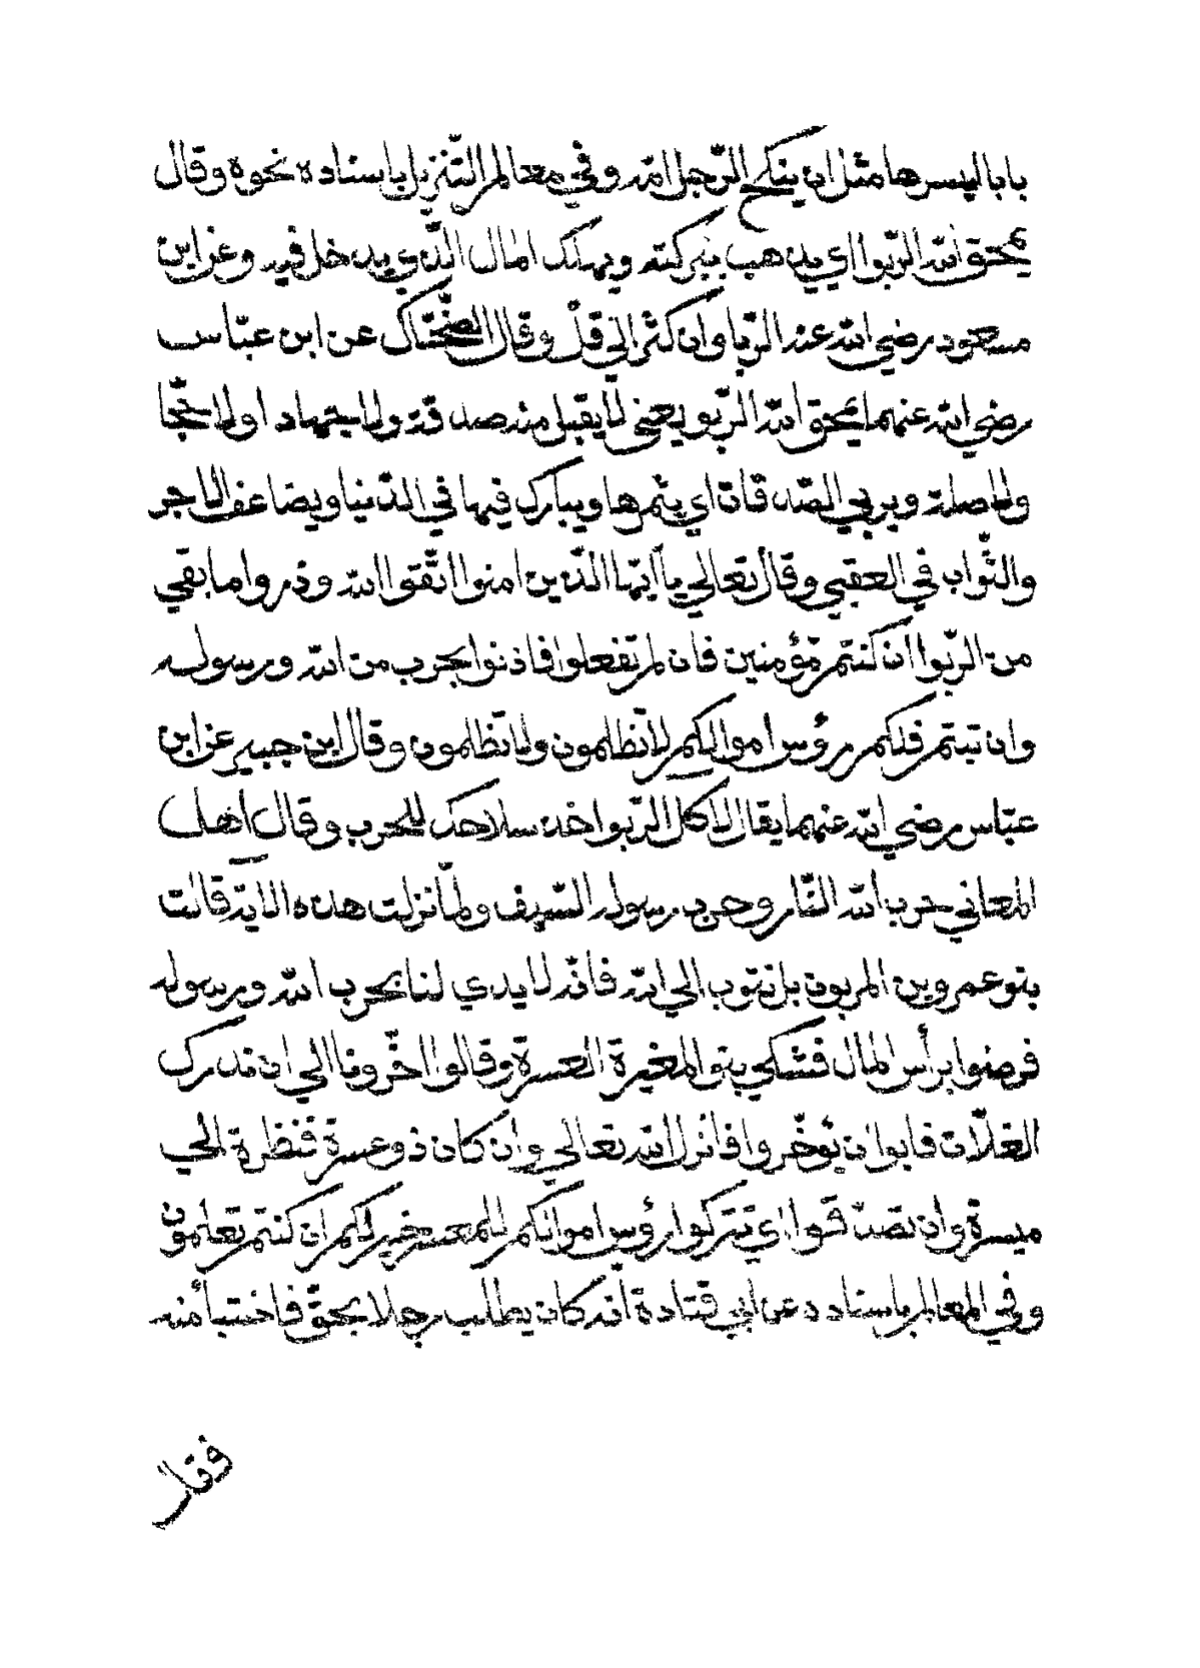 بابا ايسرها مثل ان ينكح الرّجل امّه وفي معالم التّنزيل باسناده نحوه وقال
يمحق الله الرّبوا اي يذهب ببركته ويهلك المال الّذي يدخل فيه وعن ابن
مسعود رضي الله عنه الرّبا وان كثر الي قلّ وقال الضّحّاك عن ابن عبّاس
رضي الله عنهما يمحق الله الرّبو يعني لا يقبل منه صدقة ولا جهاد اولا حجّا
ولا صلة ويربي الصّدقات اي يثمرها ويبارك فيها في الدّنيا ويضاعف الاجر
والثّواب في العقبي وقال تعالي يا أيّها الّذين امنوا اتّقوا الله وذروا ما بقي
من الرّبوا ان كنتم مّؤمنين فان لم تفعلوا فاذنوا بحرب من الله ورسوله
وان تبتم فلكم رؤس اموالكم لا تظلمون ولا تظلمون وقال ابن جبير عن ابن
عبّاس رضي الله عنهما يقال لاكل الرّبوا خذ سلاحك للحرب وقال اهل
المعاني حرب الله النّار وحرب رسوله السّيف ولمّا نزلت هذه الاية قالت
بنو عمرو بن المربون بل نتوب الي الله فانّه لا يدي لنا بحرب الله ورسوله
فرضوا برأس المال فشكي بنو المغيرة العسرة وقالوا اخّرونا الي ان ندرك
الغلّات فابوا ان يؤخّروا فانزل الله تعالي وان كان ذو عسرة فنظرة الي
ميسرة وان تصدّقوا اي تتركوا رؤس اموالكم للمعسر خير لكم ان كنتم تعلمون
وفي المعالم باسناده عن ابي قتادة انّه كان يطلب رجلا بحقّ فاختبأ منه
فقال